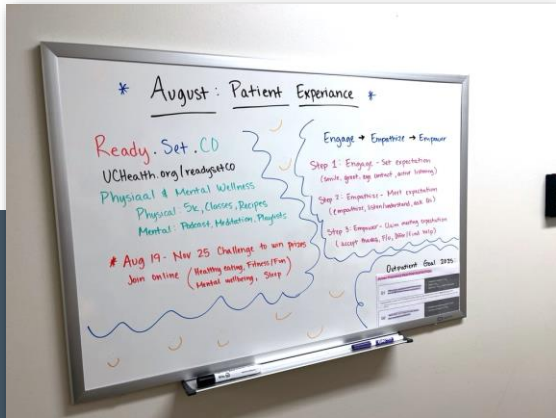 * August: Patient Experiance *
Ready. Set. CO
UCHealth.org/readysetco
Physical & Mental Wellness
Physical: 5k, Classes, Recipes
Mental: Podcast, Meditation, Playlists
* Aug 19 - Nov 25 Challenge to win prizes
Join online (Healthy eating, Fitness/Fun
Mental wellbeing, Sleep)
Engage → Empathize → Empower
Step 1: Engage - Set expectation
(smile, greet, eye contact, active listening)
Step 2: Empathize - Meet expectation
(empathize, listen/understand, and
Step 3: Empower - meeting expectation
(accept thanks, F/u, help)
Outpatient Goal 2025: